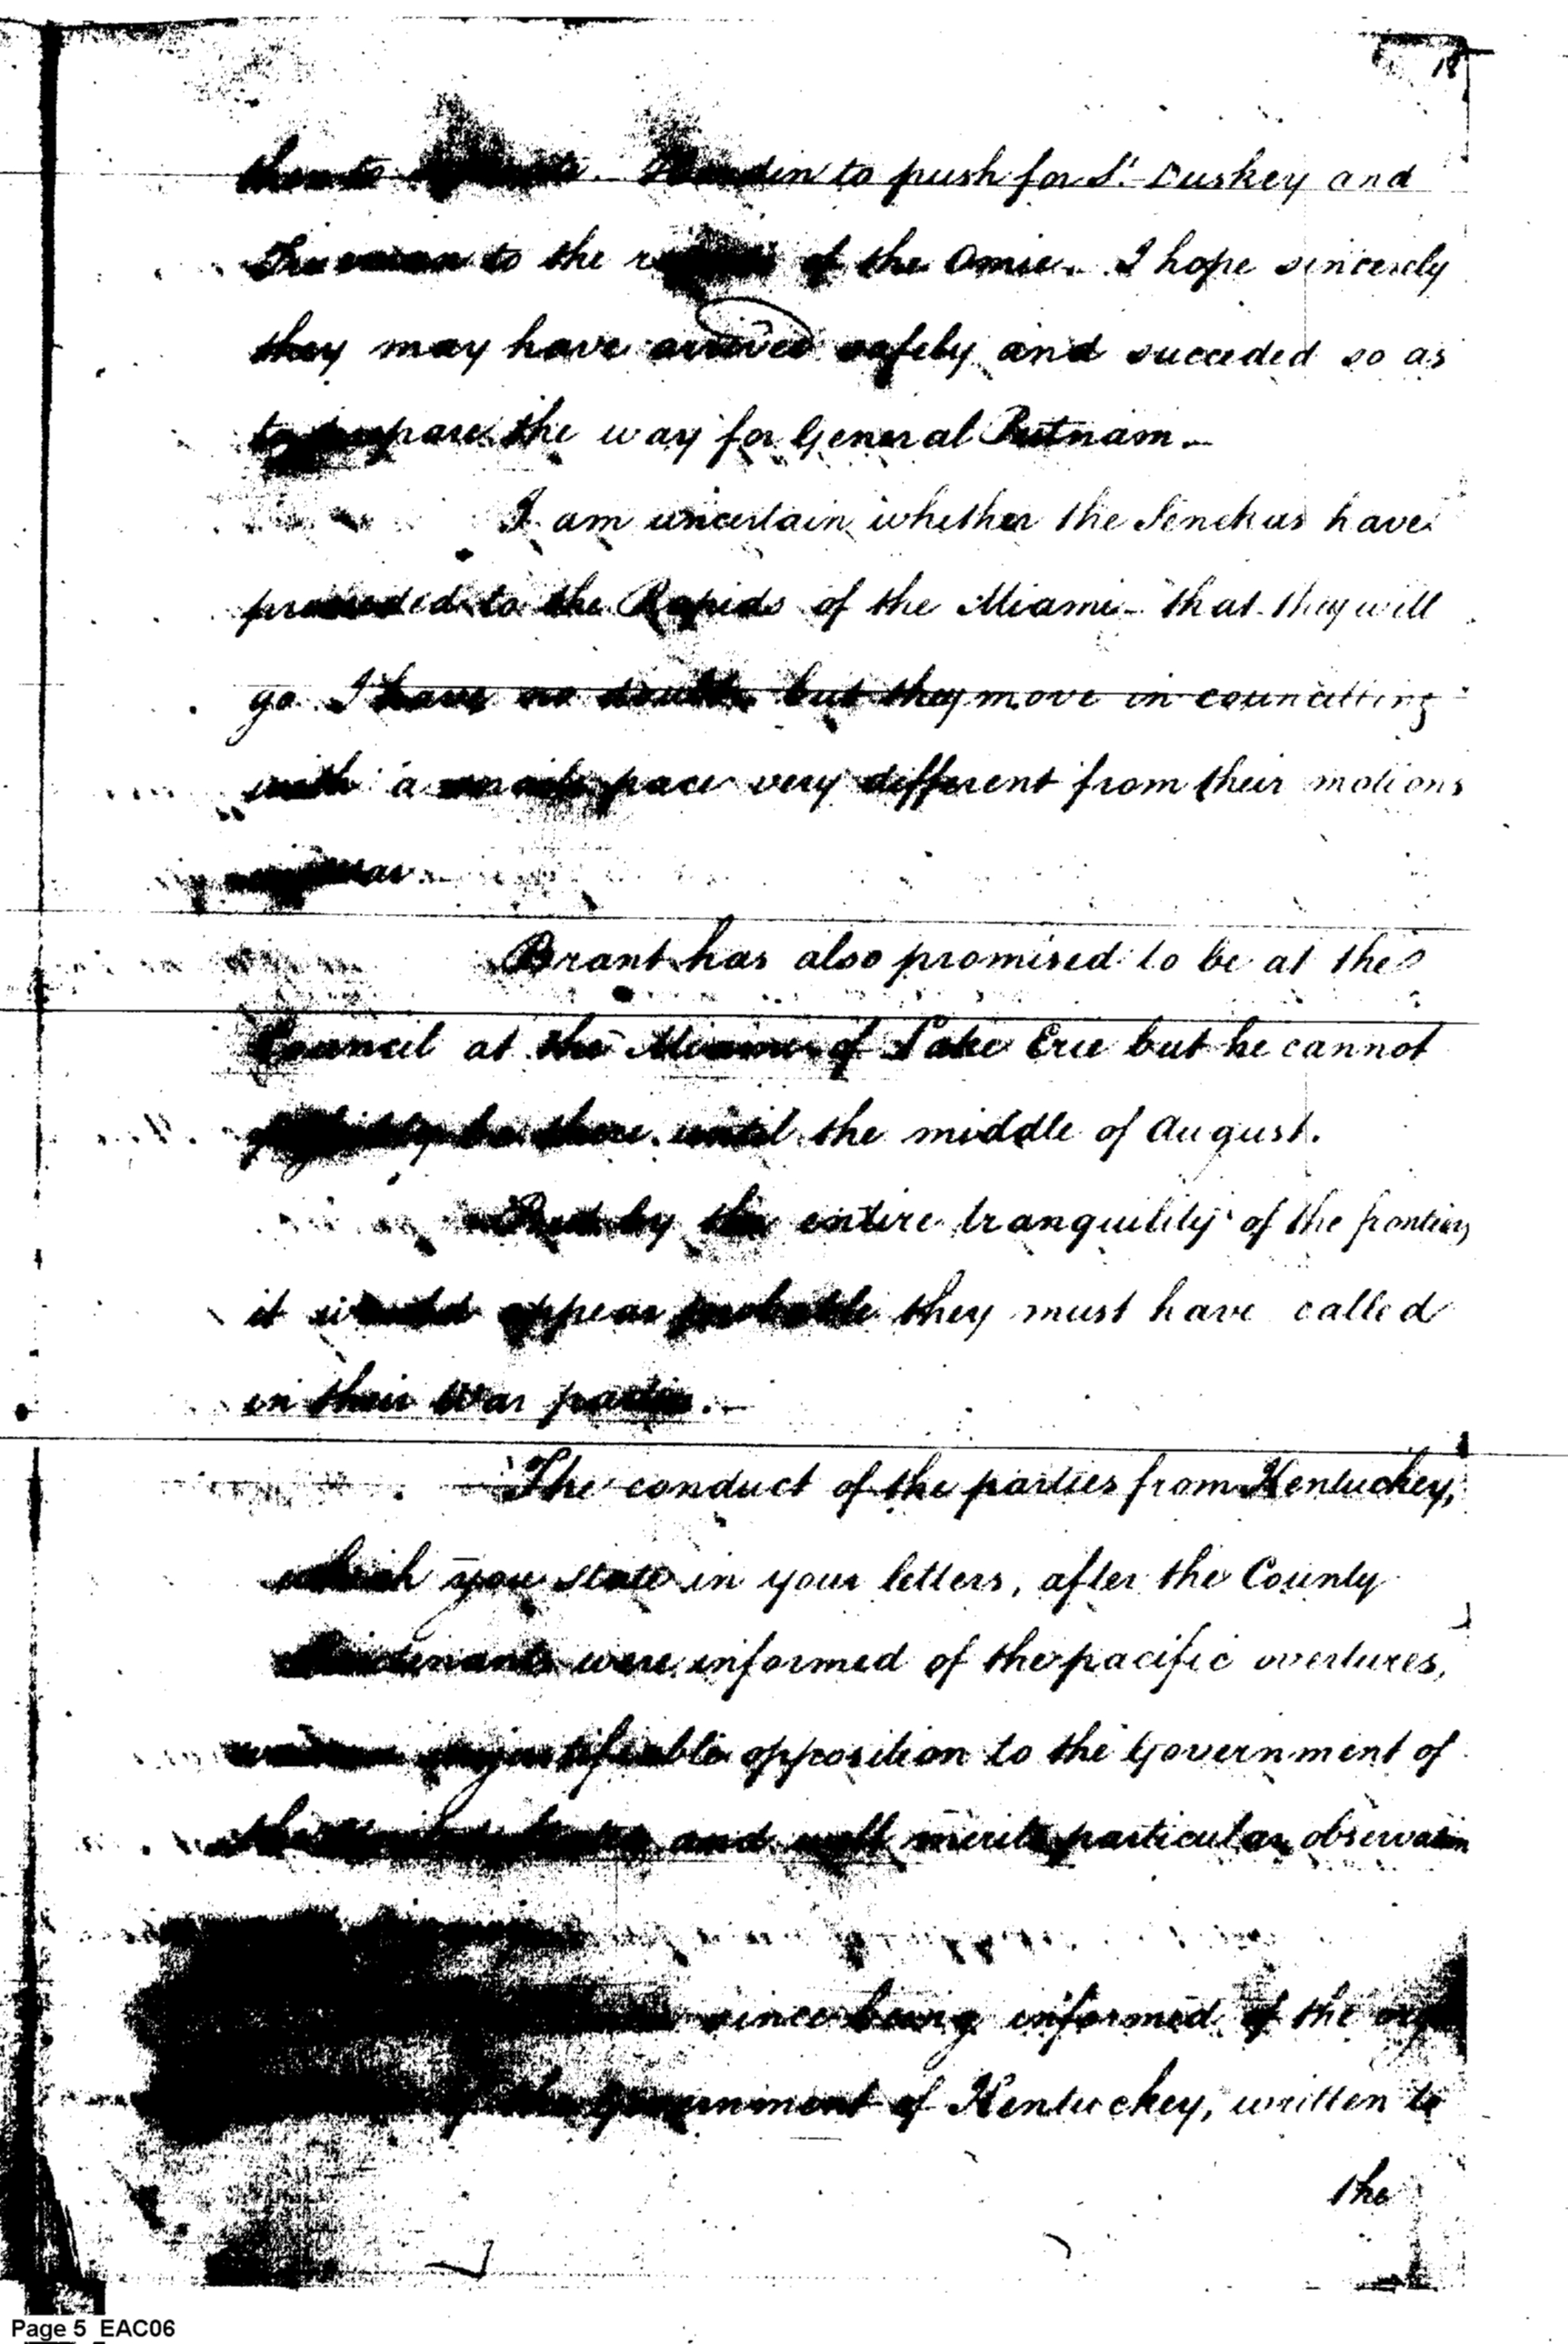 18
then to separate. Hardin to push for St. Duskey and
Trueman to the rapids of the Omie. I hope sincerely
they may have arrived safely and succeded so as
to prepare the way for General Putnam.—
I am uncertain whether the Senekas have
proceeded to the Rapids of the Miami — that they will
go I have no doubt, but they move in councilling
with a snails pace very different from their motions
war.
Brant has also promised to be at the
Council at the Miami of Lake Erie but he cannot
possibly be there until the middle of August.
But by the entire tranquility of the frontiers
it would appear probable they must have called
in their War parties.—
The conduct of the parties from Kentuckey,
which you state in your letters, after the County
Lieutenants were informed of the pacific overtures,
unjustifiable opposition to the Government of
the United States and well merits particular observation
since being informed of the
of the Government of Kentuckey, written to
the
Page 5 EAC06